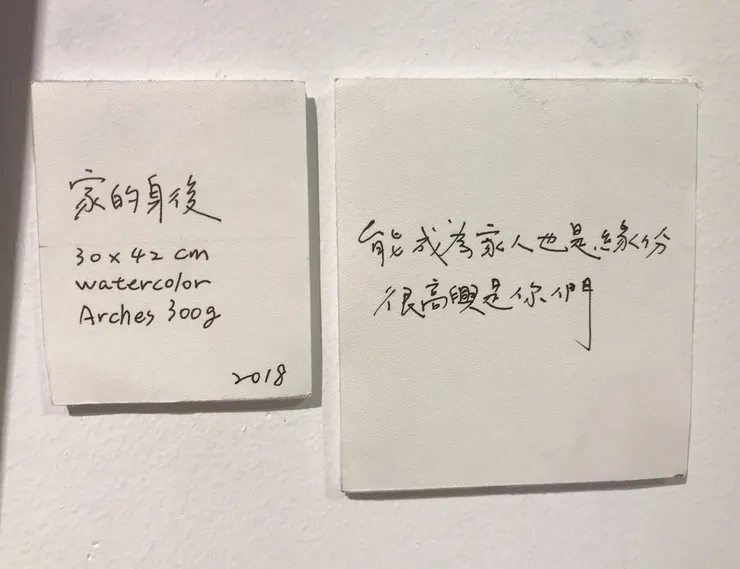 家的身後
30 x 42 cm
watercolor
Arches 300g
2018
能成為家人也是緣份
很高興是你們